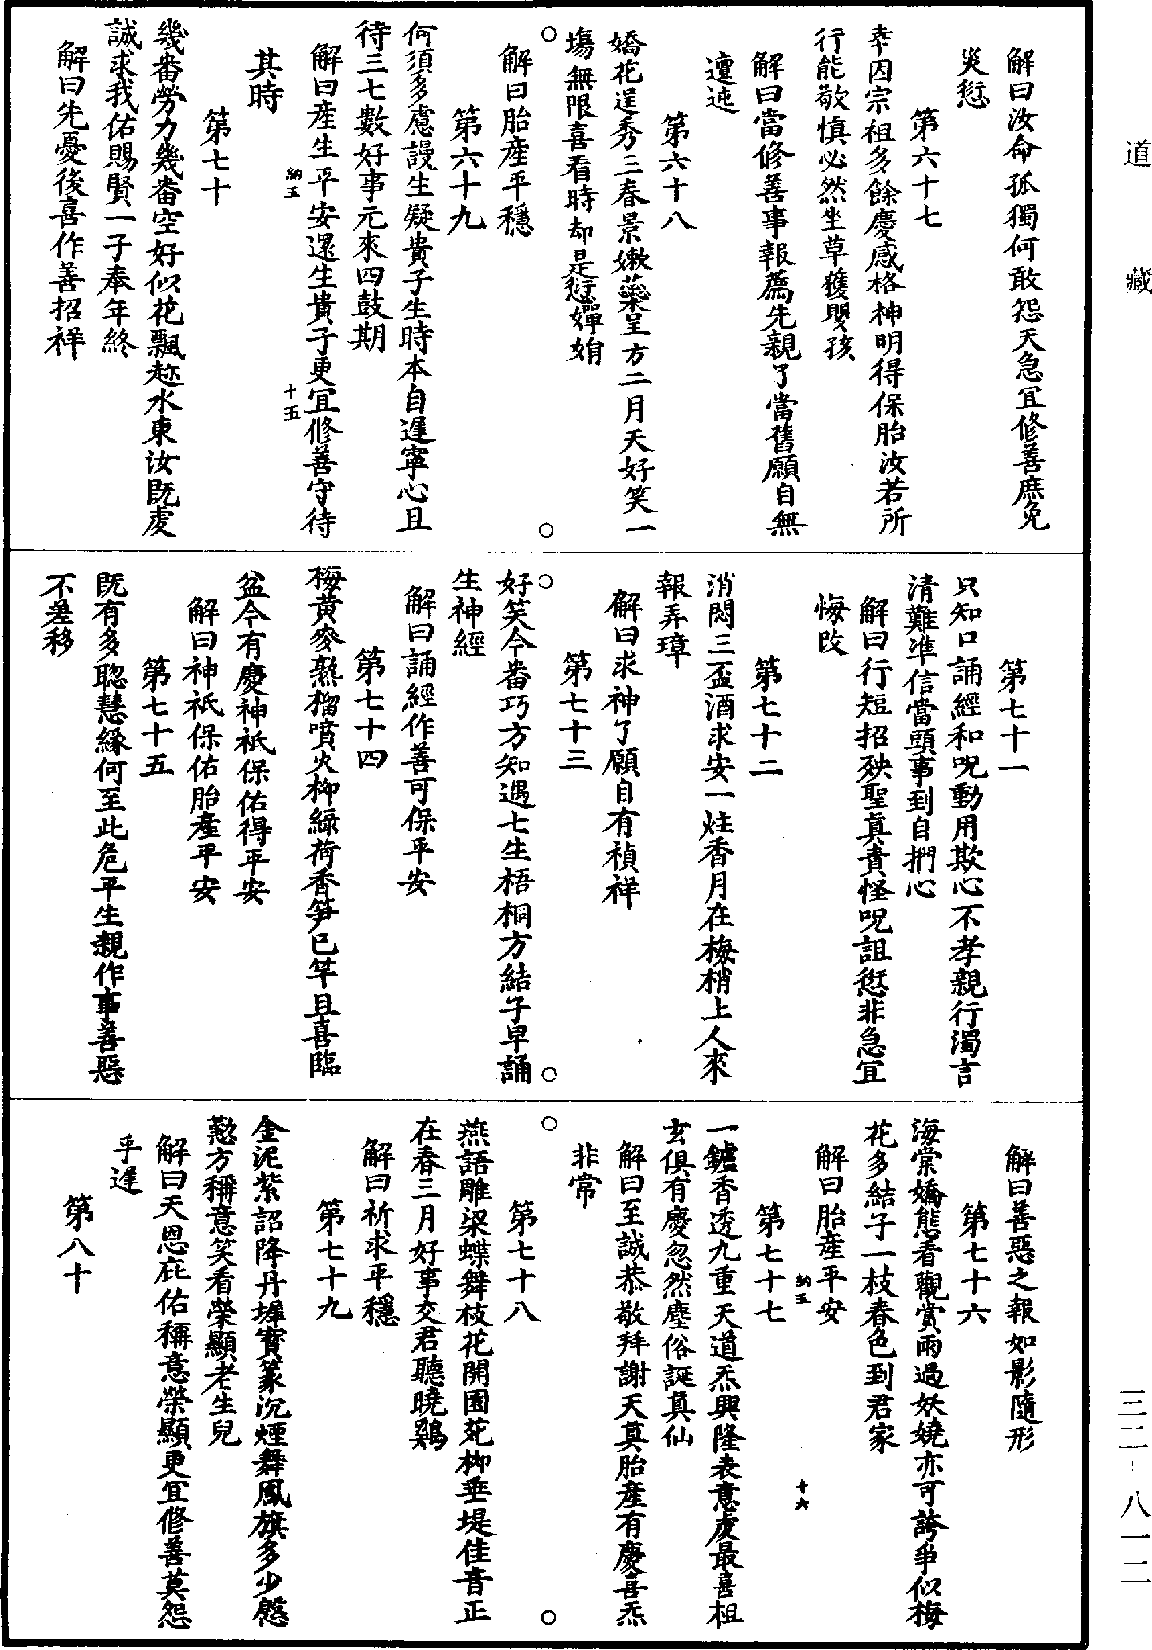 解曰汝命孤獨何敢怨天急宜修善庶免
災愆
第六十七
幸因宗祖多餘慶感格神明得保胎汝若所
行能敬慎必然坐草獲嬰孩
解曰當修善事報薦先親了當舊願自無
邅迍
第六十八
嬌花逞秀三春景嫩蘂呈方二月天好笑一
塲無限喜看時却是愆嬋娟
解曰胎產平穩
第六十九
何須多慮謾生疑貴子生時本自遲寧心且
待三七數好事元來四鼓期
解曰產生平安還生貴子更宜修善守待
其時
納五
十五
第七十
幾番勞力幾番空好似花飄趂水東汝既虔
誠求我佑賜賢一子奉年終
解曰先憂後喜作善招祥
第七十一
只知口誦經和呪動用欺心不孝親行濁言
清難準信當頭事到自捫心
解曰行短招殃聖真責怪呪詛愆非急宜
悔改
第七十二
消悶三盃酒求安一炷香月在梅梢上人來
報弄璋
解曰求神了願自有禎祥
第七十三
好笑今番巧方知遇七生梧桐方結子早誦
生神經
解曰誦經作善可保平安
第七十四
梅黃麥熟榴噴火柳綠荷香笋已竿且喜臨
盆今有慶神祇保佑得平安
解曰神祇保佑胎產平安
第七十五
既有多聰慧緣何至此危平生親作事善惡
不差移
解曰善惡之報如影隨形
第七十六
海棠嬌態看觀賞雨過妖嬈亦可誇爭似梅
花多結子一枝春色到君家
解曰胎產平安
納五
十六
第七十七
一鑪香透九重天道炁興隆表意虔最喜祖
玄俱有慶忽然塵俗誕真仙
解曰至誠恭敬拜謝天真胎產有慶喜炁
非常
第七十八
燕語雕梁蝶舞枝花開園苑柳垂堤佳音正
在春三月好事交君聽曉鷄
解曰祈求平穩
第七十九
金泥紫詔降丹墀寳篆沉煙舞鳳旗多少慇
懃方稱意笑看榮顯老生兒
解曰天恩庇佑稱意榮顯更宜修善莫怨
乎遲
第八十
道藏
三二-八一二